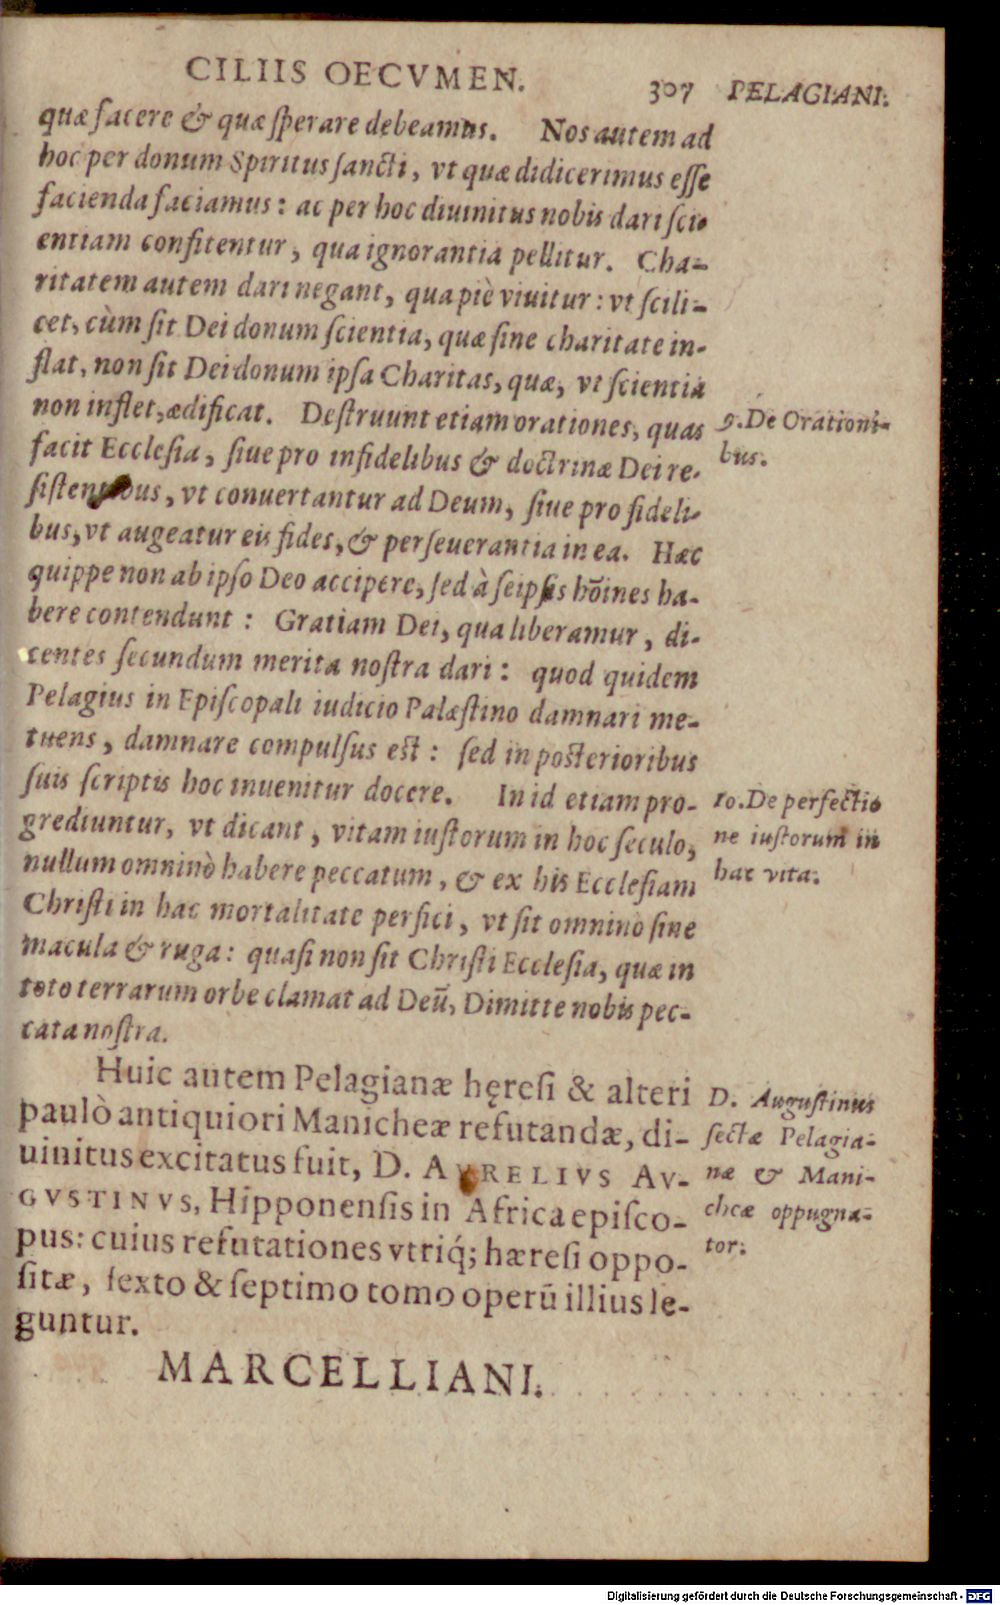 CILIIS OECVMEN. 307 PELAGIANI.
quæ facere & quæ ſperare debeamus. Nos autem ad
hoc per donum Spiritus ſancti, vt quæ didicerimus eſſe
facienda faciamus: ac per hoc diuinitus nobis dari ſci-
entiam confitentur, qua ignorantia pellitur. Cha-
ritatem autem dari negant, qua piè viuitur: vt ſcili-
cet, cùm ſit Dei donum ſcientia, quæ ſine charitate in-
flat, non ſit Dei donum ipſa Charitas, quæ, vt ſcientia
non inflet, ædificat. Deſtruunt etiam orationes, quas
facit Eccleſia, ſiue pro infidelibus & doctrinæ Dei re-
ſiſtentibus, vt conuertantur ad Deum, ſiue pro fideli-
bus, vt augeatur eis fides, & perſeuerantia in ea. Hæc
quippe non ab ipſo Deo accipere, ſed à ſeipſis hōines ha-
bere contendunt: Gratiam Dei, qua liberamur, di-
centes ſecundum merita noſtra dari: quod quidem
Pelagius in Epiſcopali iudicio Palæſtino damnari me-
tuens, damnare compulſus eſt: ſed in poſterioribus
ſuis ſcriptis hoc inuenitur docere. In id etiam pro-
grediuntur, vt dicant, vitam iuſtorum in hoc ſeculo,
nullum omninò habere peccatum, & ex his Eccleſiam
Chriſti in hac mortalitate perfici, vt ſit omnino ſine
macula & ruga: quaſi non ſit Chriſti Eccleſia, quæ in
toto terrarum orbe clamat ad Deū, Dimitte nobis pec-
cata noſtra.
9. De Orationi-
bus.
10. De perfectio
ne iuſtorum in
hac vita.
Huic autem Pelagianæ hęreſi & alteri
paulò antiquiori Manicheæ refutandæ, di-
uinitus excitatus fuit, D. AVRELIVS AV-
GVSTINVS, Hipponenſis in Africa epiſco-
pus: cuius refutationes vtriq́; hæreſi oppo-
ſitæ, ſexto & ſeptimo tomo operū illius le-
guntur.
D. Auguſtinus
ſectæ Pelagia-
næ & Mani-
cheæ oppugna-
tor.
MARCELLIANI.
Digitalisierung gefördert durch die Deutsche Forschungsgemeinschaft - DFG